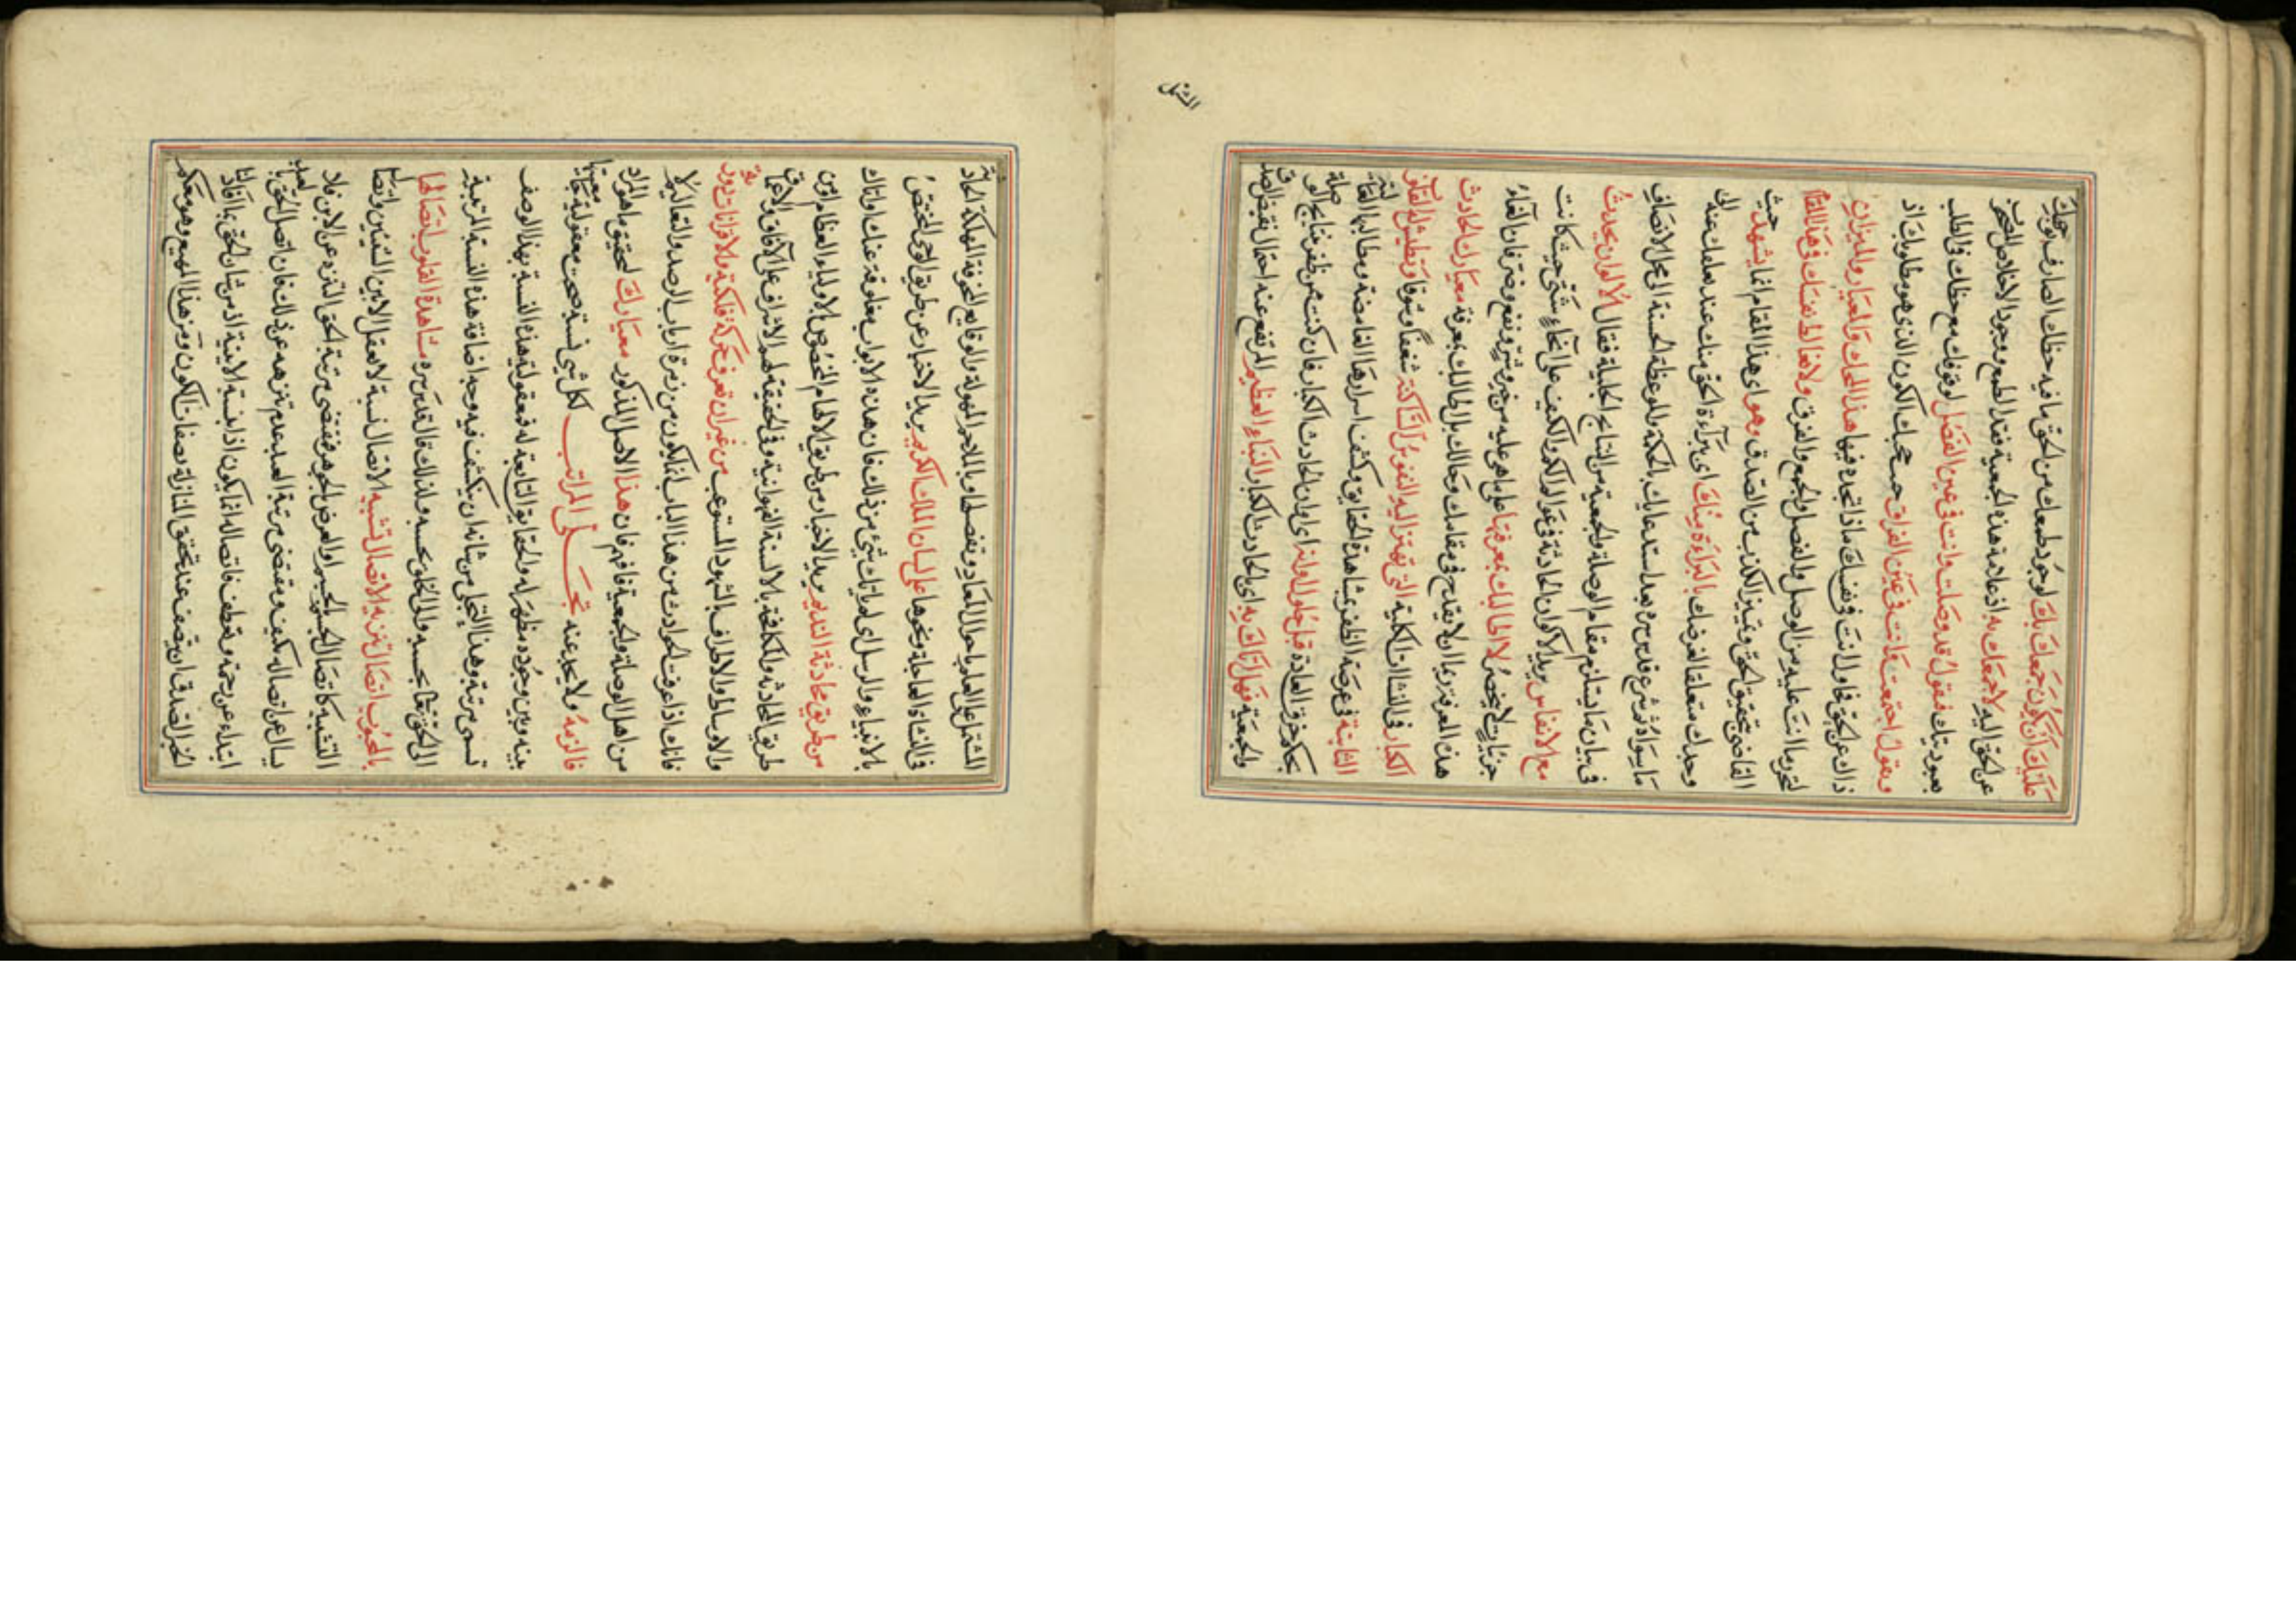 عليك ان يكون جمعك بك لوجود طمعك من الحق ما فيه حظك الصارف وجهك
عن الحق اليه لا جمعك به اذ علامة هذه الجمعية فقد الطمع ووجود الاخلاص المصحح
بعبوديتك فتقول قد وصلت وانت في عين الفصل لوقوفك مع حظك في الطلب
وتقول اجتمعت وانت في عين الفراق حجبك الكون الذي هو مطلوبك اذ
ذاك عن الحق انت في نفسك ماذا تجده فيها هذا المحك والمعيار والميزان
انت عليه من الوصل والفصل والجمع والفرق ولا تغالط نفسك في هذا المقام
القاضي بتحقيق الحق وتميز الكذب من الصدق وهو اى هذا المقام انما يشهدك حيث
وجدك متعلقا لغرضك بالبراءة منك اى ببرآءة الحق منك عند عنه الى
ما سواه ثم شرع قدس سره بعد استدعايك بالحكمة والموعظة الحسنة الى محل الانصاف
في بيان ما يستلزم مقام الوصلة والجمعية من النتايج الجليلة فقال الاكوان تحدث
مع الانفاس يريد الاكوان الحادثة في عوالم الكم والكيف على انحاء شتى حيث كانت
جزئيات لا تنحصر لا اطالبك بمعرفتها على ما هى عليه من خير وشر ونفع وضر فان
هذه المعرفة لا يقدح في مقامك وحالك بل اطالبك بمعرفة معيارك الحادث
الكبار في النشاات الكلية التي تهتز اليه النفوس الساكنة شغفا وشوقا وتطيش له
الثابتة في عرصة الظفر بمشاهدة الحقايق وكشف اسرارها الغامضة ومطالبها
بحكم خرق العادة قبل حلول اوانه اى اوان الحادث الكبار فان كنت ممن ظفر بنتايج الوصلة
والجمعية فهل اتاك به اى بالحادث الكبار النباء العظيم المرتفع عنه احتمال نقيض الصدق
المشتمل
المشتمل على العلم باحوال المعاد وتفصيله وبالملاحم المهولة والوقايع المخوفة المهلكة الحادثة
في النشاة العاجلة ونحوها على لسان الملك الكريم يريد الاخبار عن طريق الوحى المختص
بالانبياء والرسل اى لم ياتك شئ من ذلك فان هذه الابواب مغلوقة عنك او اتاك
من طريق محادثة النديم يريد الاخبار من طريق الالهام المخصوص بالاولياء العظام الذين
طريق المحادثة والمكافحة بالالسنة الفهوانية وفي الحقيقة لهم الاشراف على الآفاق والاعماق
والاوساط والاطراف بالشهود المستوعب من غير ان تعرف حركة فلكية ولا قرانات دورية
فانك اذا عرفت الحوادث من هذا الباب انما يكون من زمرة ارباب الرصد والتعاليم لا
من اهل الوصلة والجمعية فافهم فان هذا الاصل المذكور معيارك لتحقيق ما هو المراد
فالزمه ولا تحد عنه تجلى المراتب لكل شئ نسبة صحت معقولية معيتها
بينه وبين وجوده مظهر له والحقايق التابعة له فمعقولية هذه النسبة بهذا الوصف
تسمى مرتبة وهذا التجلى من شانه ان يكشف فيه وجه اضافة هذه النسبة المرتبية
الى الحق تعالى بحسبه والى الخلق بحسبه ولذلك قال قدس سره مشاهدة القلوب اتصالها
بالمحبوب اتصال تنزيه لا اتصال تشبيه الاتصال نسبة لا تعقل الا بين الشيئين واتصال
التشبيه كاتصال الجسم بالجسم او العرض بالجوهر فمقتضى مرتبة الحق التنزه عن الاين فلا
يسال عن اتصاله بكيف ومقتضى مرتبة العبد عدم تنزهه عن ذلك فان اتصل الحق بالعبد
ابتداء عن رحمة وتعطف فاتصاله انما يكون اذا بنسبة الاينية اذ من شان الحق بما